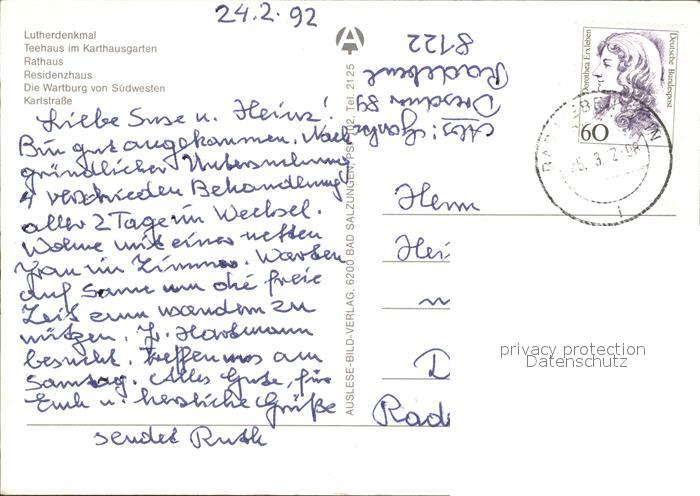 24.2.92
Lutherdenkmal
Teehaus im Karthausgarten
Rathaus
Residenzhaus
Die Wartburg von Südwesten
Karlstraße
Liebe Suse u. Heinz!
Bin gut angekommen. Nach
gründlicher Untersuchung
4 verschieden Behandlungen
aller 2 Tage im Wechsel.
Wohne mit einer netten
Frau im Zimmer. Warten
auf Sonne um die freie
Zeit zum wandern zu
nützen. Fr. Hartmann
besucht. Treffen uns am
Samstag. Alles Gute, für
Euch u. herzliche Grüße
sendet Ruth
AUSLESE-BILD-VERLAG, 6200 BAD SALZUNGEN, PSF 102, Tel. 2125
Abs:
Dresdner 89
Radebeul
8122
Dorothea Erxleben
Deutsche Bundespost
60
Herrn
Hei
D
Rade
privacy protection
Datenschutz